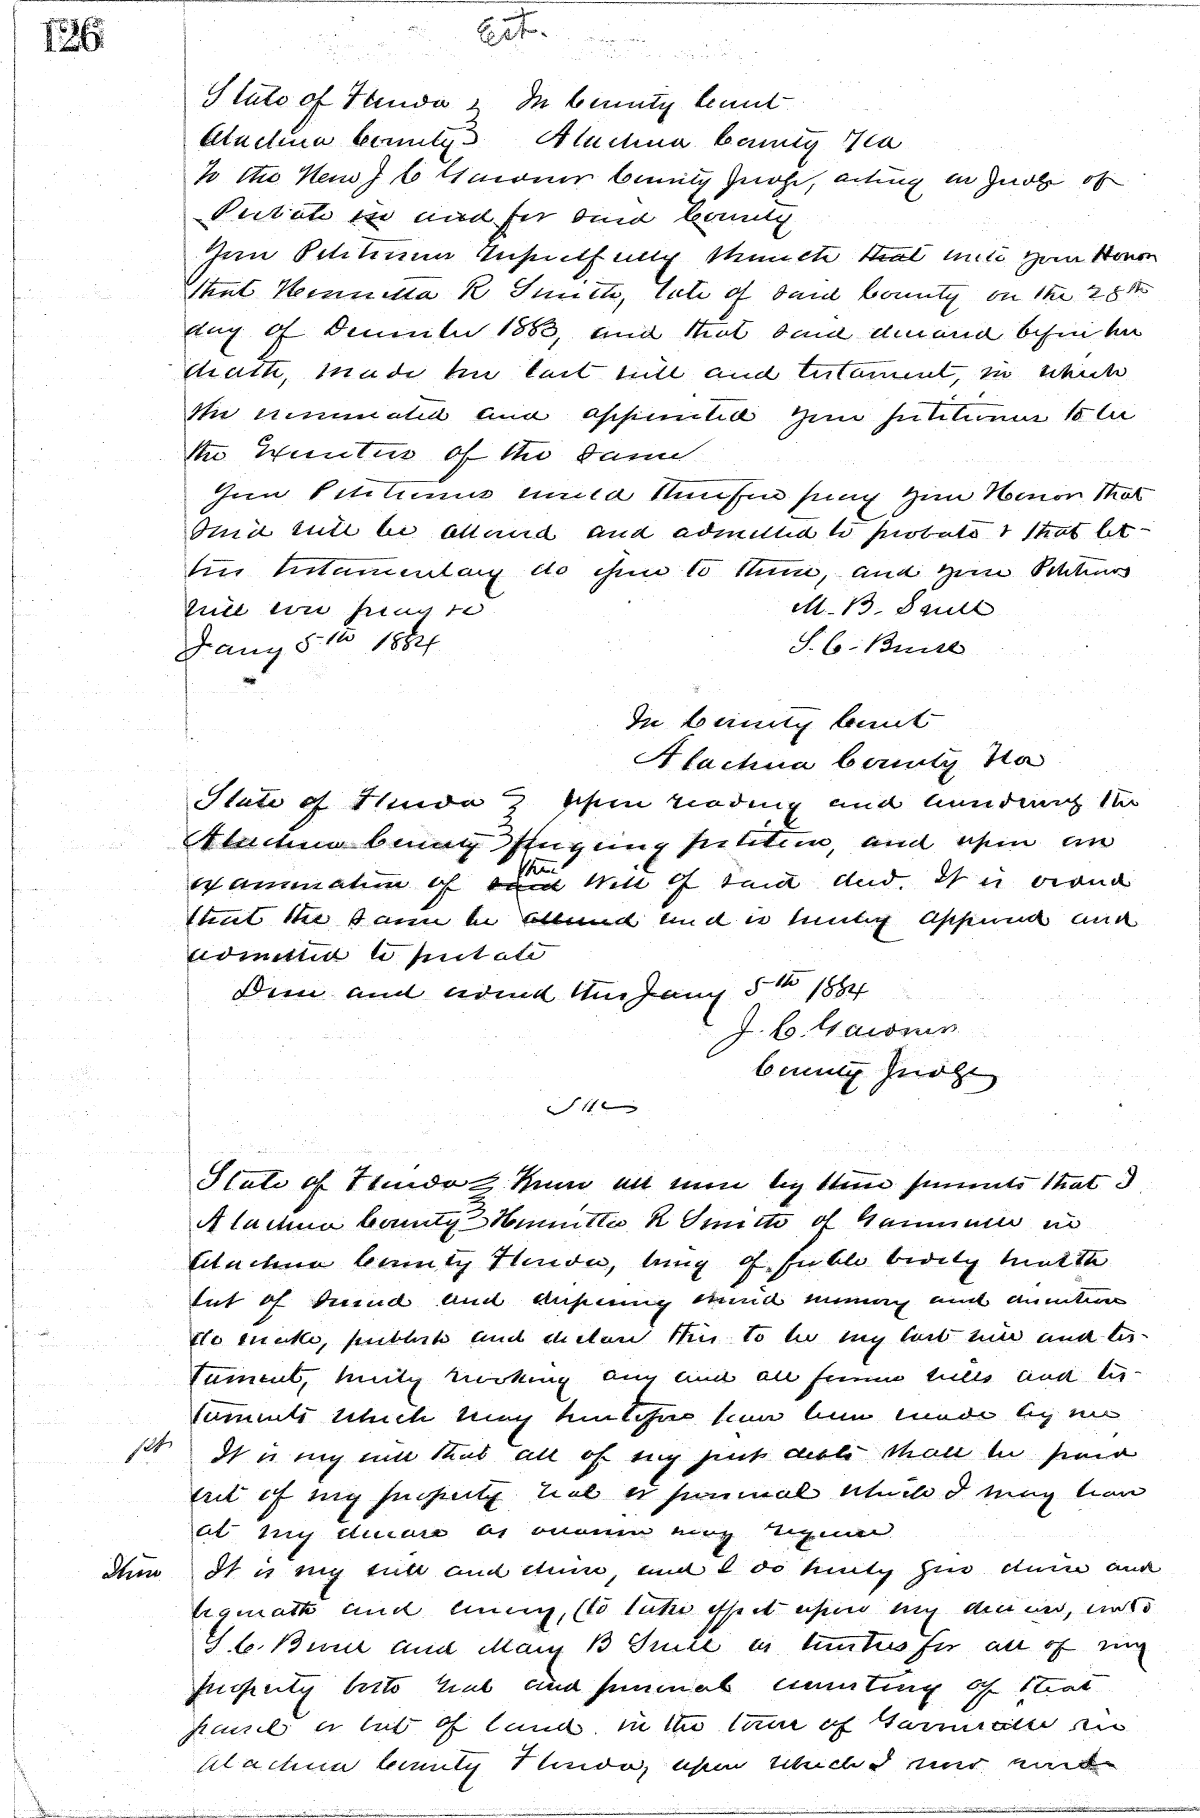 126
State of Florida } In County Court
Alachua County } Alachua County Fla
To the Hon J C Gardner County Judge, acting as Judge of
Probate in and for said County
Your Petitioners respectfully that unto your Honor
that Henrietta R Smith, late of said County on the 28th
day of December 1883, and that said deceased before her
death, made her last will and testament, in which
she nominated and appointed your petitioners to be
the Executors of the same
Your Petitioners would therefore pray your Honor that
said will be allowed and admitted to probate & that let-
ters testamentary do issue to them, and your Petitioners
will ever pray &c
M. B. Smith
Jany 5th 1884
S. C.
In County Court
Alachua County Fla
State of Florida } Upon reading and considering the
Alachua County } foregoing petition, and upon an
examination of said the Will of said decd. It is ordered
that the same be allowed and is hereby approved and
admitted to probate
Done and ordered this Jany 5th 1884
J. C. Gardner
County Judge
State of Florida } Know all men by these presents that I
Alachua County } Henrietta R Smith of Gainesville in
Alachua County Florida, being of feeble bodily health
but of sound and disposing mind memory and discretion
do make, publish and declare this to be my last will and tes-
tament, hereby revoking any and all former wills and tes-
taments which may heretofore have been made by me
1st It is my will that all of my just debts shall be paid
out of my property real or personal which I may have
at my decease as occasion may require
Item It is my will and desire, and I do hereby give devise and
bequeath and convey, (to take effect upon my decease, unto
S. C. and Mary B as trustees for all of my
property both real and personal consisting of that
parcel or lot of land in the town of Gainesville in
Alachua County Florida, upon which I now reside